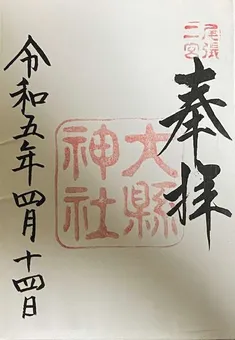 尾張
二宮
奉拝
大縣
神社
令和五年四月十四日